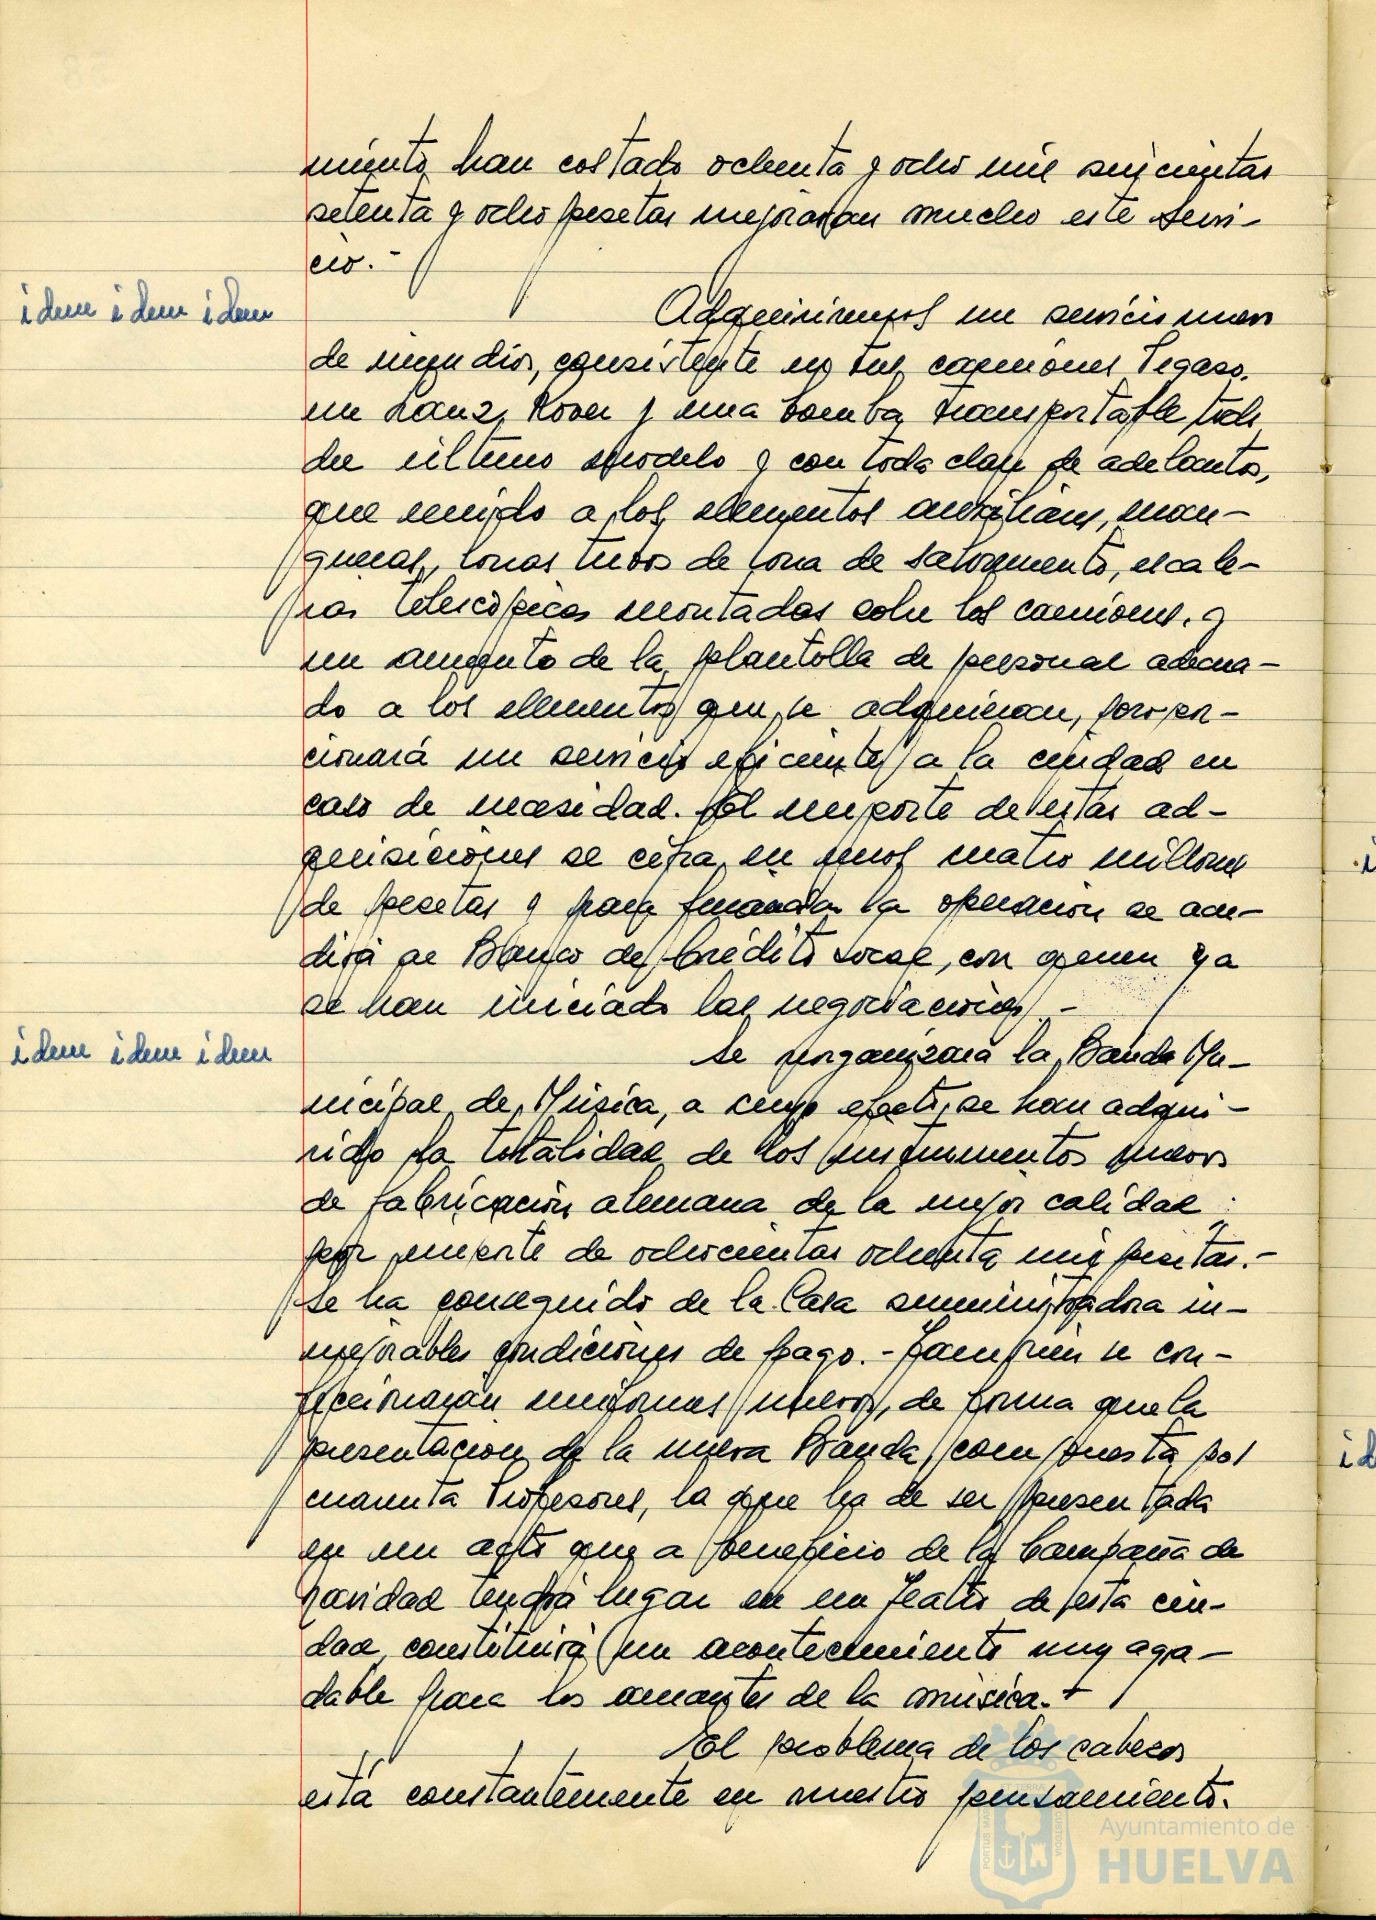 miento han costado ochenta y ocho mil seiscientas
setenta y ocho pesetas mejoraran mucho este servi-
cio.-
idem idem idem
Adquiriremos un servicio nuevo
de incendios, consistente en tres camiones Pegaso,
un Lanz Rover y una bomba transportable todo
de último modelo y con toda clase de adelantos,
que unido a los elementos auxiliares, man-
gueras, lonas tubos de lona de salvamento, escale-
ras telescópicas montadas sobre los camiones, y
un aumento de la plantilla de personal adecua-
do a los elementos que se adquieran, propor-
cionará un servicio eficiente a la ciudad en
caso de necesidad. El importe de estas ad-
quisiciones se cifra en unos cuatro millones
de pesetas y para financiar la operación se acu-
dirá al Banco de Crédito Local, con quien ya
se han iniciado las negociaciones.-
idem idem idem
Se reorganizará la Banda Mu-
nicipal de Música, a cuyo efecto, se han adqui-
rido la totalidad de los instrumentos nuevos
de fabricación alemana de la mejor calidad,
por importe de ochocientas ochenta mil pesetas.-
Se ha conseguido de la Casa suministradora in-
mejorables condiciones de pago.- También se con-
feccionarán uniformes nuevos, de forma que la
presentación de la nueva Banda, compuesta por
cuarenta Profesores, la que ha de ser presentada
en un acto que a beneficio de la Campaña de
navidad tendrá lugar en un Teatro de esta ciu-
dad, constituirá un acontecimiento muy agra-
dable para los amantes de la música.-
El problema de los cabezos
está constantemente en nuestro pensamiento.
Ayuntamiento de
HUELVA